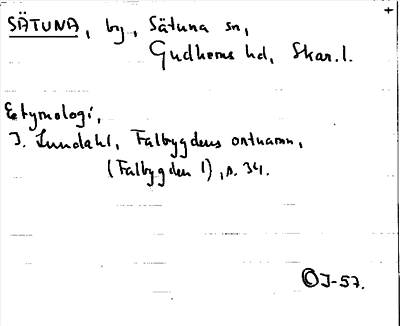 SÄTUNA, by, Sätuna sn,
Gudhems hd, Skar. l.
Etymologi,
I. Lundahl, Falbygdens ortnamn,
(Falbygden 1), s. 34.
OJ-57.